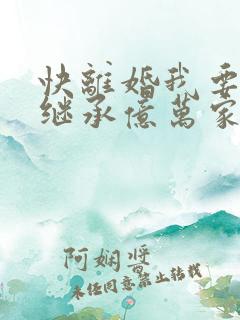 快離婚我要
继承億萬家
阿娴醬
未经同意禁止转载